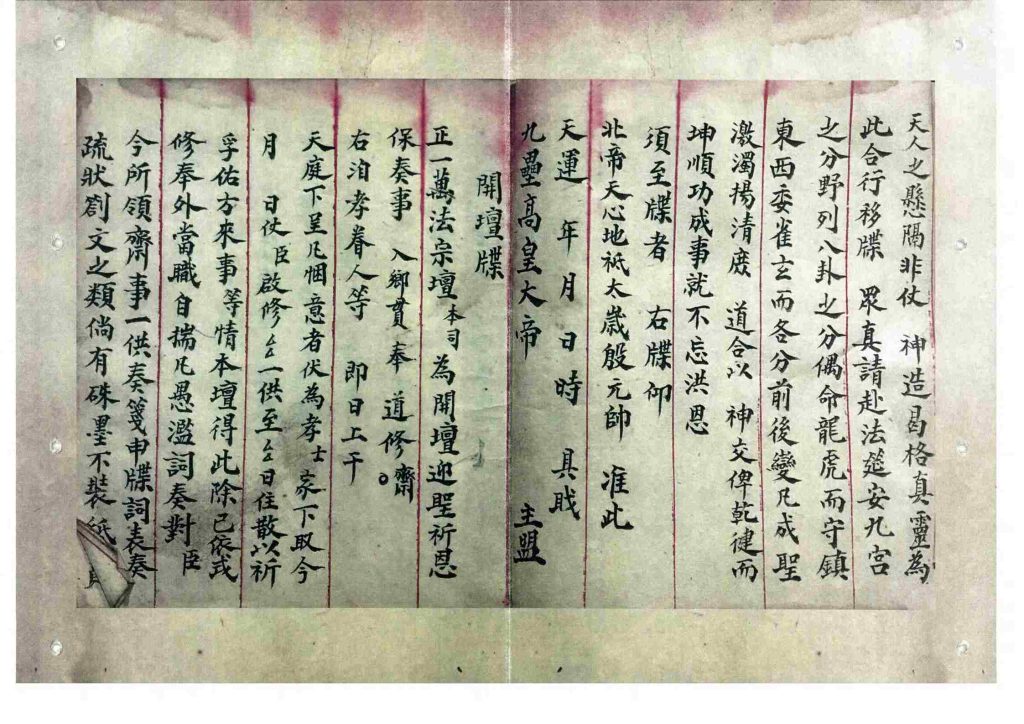 天人之懸隔非仗　神造曷格真靈為
此合行移牒　眾真請赴法筵安九宮
之分野列八卦之分偶命龍虎而守鎮
東西委雀玄而各分前後變凡成聖
激濁揚清庶　道合以　神交俾乾健而
坤順功成事就不忘洪恩
須至牒者　右牒仰
北帝天心地祇太歲殷元帥　准此
天運　年　月　日　時　具職
九壘高皇大帝　主盟
開壇牒
正一萬法宗壇本司為開壇迎聖祈恩
保奏事　入鄉貫奉　道修齋。
右洎孝眷人等　即日上干
天庭下呈凡悃意者伏為孝士家下取今
月　日仗臣啟修厶厶一供至厶厶日住散以祈
孚佑方來事等情本壇得此除已依式
修奉外當職自揣凡愚濫詞奏對臣
今所領齋事一供奏箋申牒詞表奏
疏狀劄文之類倘有硃墨不裝紙